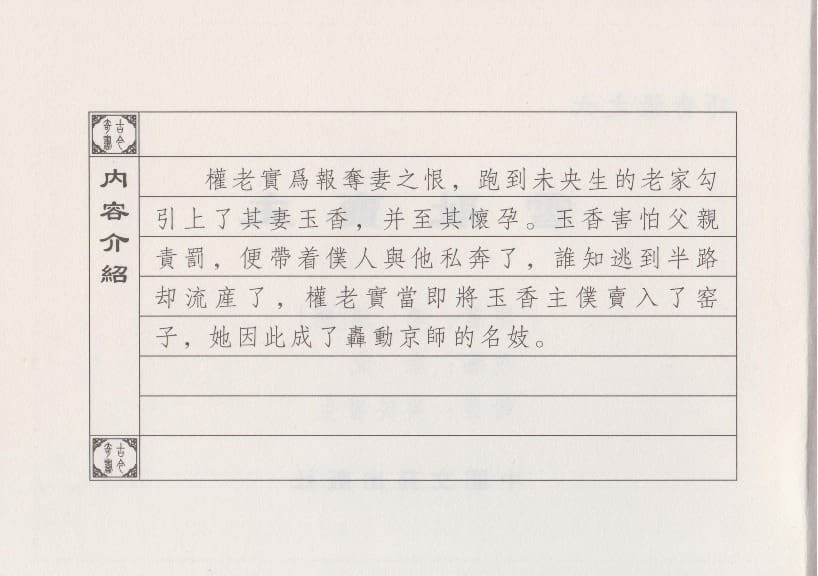 古今奇書
內容介紹
權老實爲報奪妻之恨，跑到未央生的老家勾
引上了其妻玉香，并至其懷孕。玉香害怕父親
責罰，便帶着僕人與他私奔了，誰知逃到半路
却流産了，權老實當即將玉香主僕賣入了窑
子，她因此成了轟動京師的名妓。
古今奇書